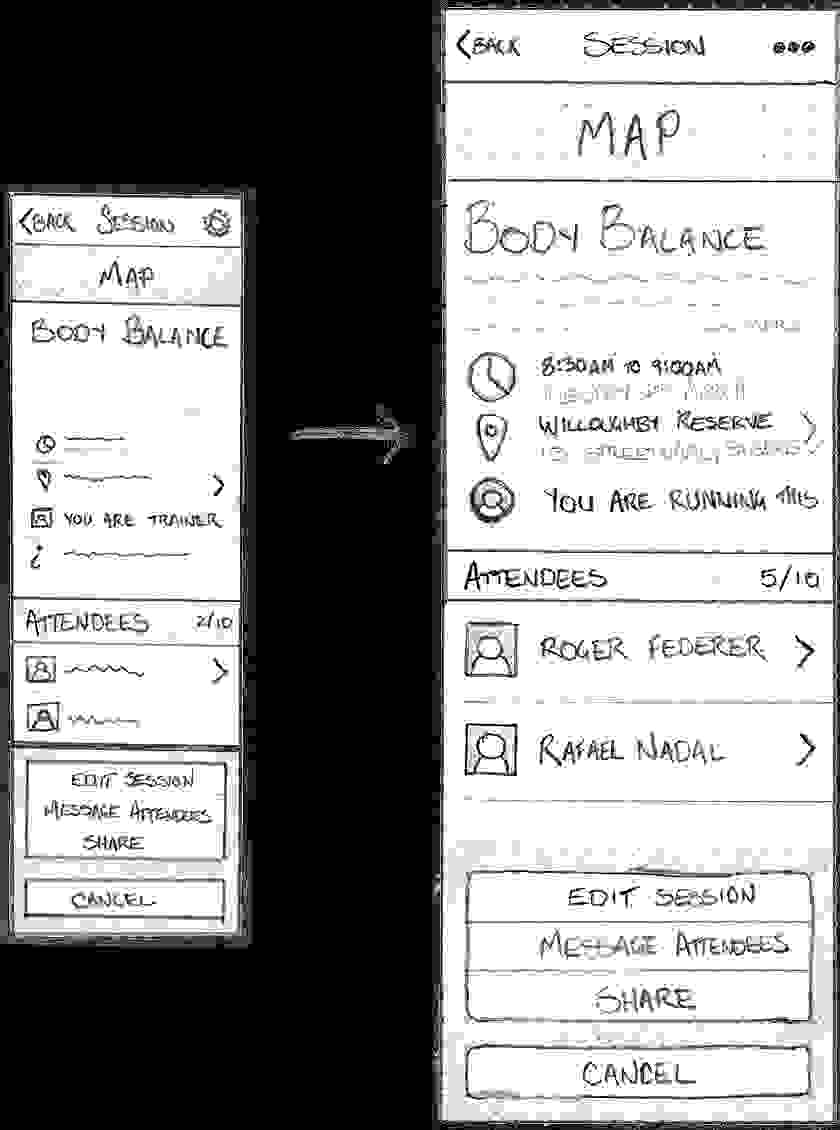 BACK SESSION
MAP
BODY BALANCE
YOU ARE TRAINER
ATTENDEES 2/10
EDIT SESSION
MESSAGE ATTENDEES
SHARE
CANCEL
BACK SESSION
MAP
BODY BALANCE
MORE
8:30AM TO 9:00AM
WILLOUGHBY RESERVE
YOU ARE RUNNING THIS
ATTENDEES 5/10
ROGER FEDERER
RAFAEL NADAL
EDIT SESSION
MESSAGE ATTENDEES
SHARE
CANCEL